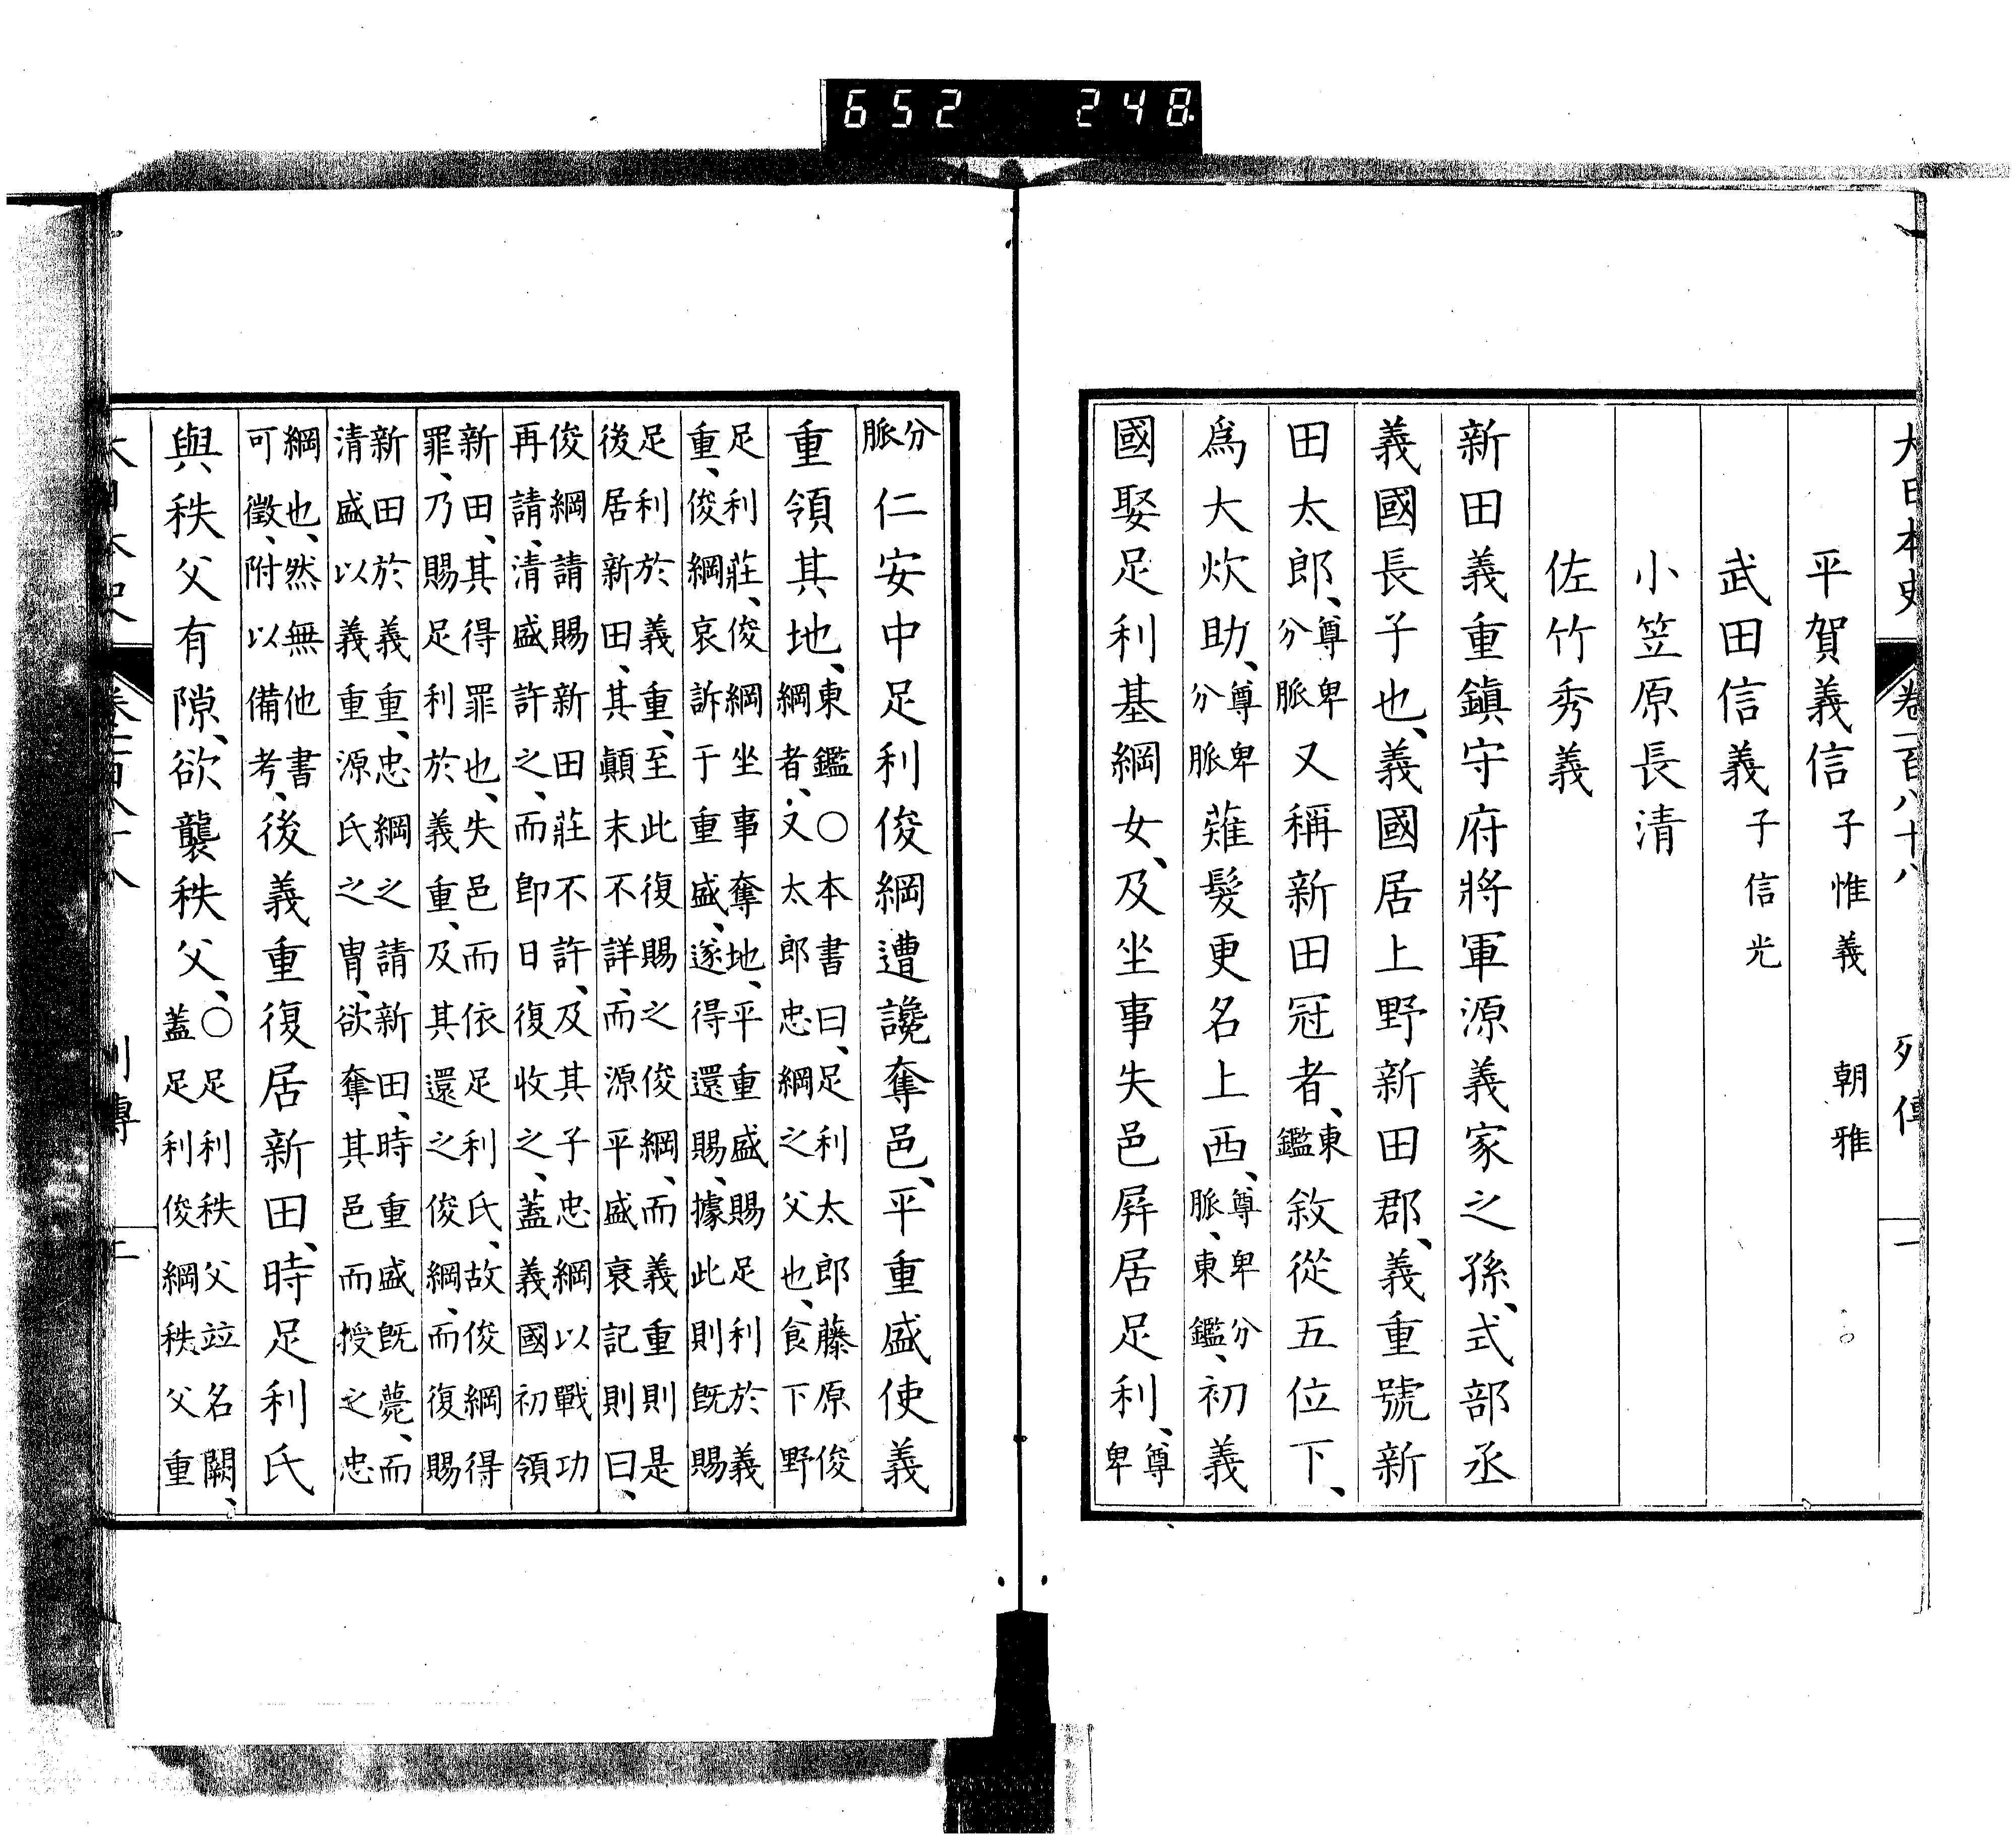 652 248
大日本史 卷一百八十八 列傳 一
平賀義信 子惟義 朝雅
武田信義 子信光
小笠原長清
佐竹秀義
新田義重鎮守府將軍源義家之孫、式部丞
義國長子也、義國居上野新田郡、義重號新
田太郎、尊卑分脈又稱新田冠者、東鑑敘從五位下、
爲大炊助、尊卑分脈薙髮更名上西、尊卑分脈、東鑑、初義
國娶足利基綱女、及坐事失邑屛居足利、尊卑
分脈仁安中足利俊綱遭讒奪邑、平重盛使義
重領其地、東鑑、〇本書曰、足利太郎藤原俊綱者、又太郎忠綱之父也、食下野
足利莊、俊綱坐事奪地、平重盛賜足利於義重、俊綱哀訴于重盛、遂得還賜、據此則既賜
足利於義重、至此復賜之俊綱、而義重則是後居新田、其顚末不詳、而源平盛衰記則曰、
俊綱請賜新田莊不許、及其子忠綱以戰功再請、清盛許之、而卽日復收之、蓋義國初領
新田、其得罪也、失邑而依足利氏、故俊綱得罪、乃賜足利於義重、及其還之俊綱、而復賜
新田於義重、忠綱之請新田、時重盛既薨、而清盛以義重源氏之冑、欲奪其邑而授之忠
綱也、然無他書可徵、附以備考、後義重復居新田、時足利氏
與秩父有隙、欲襲秩父、〇足利秩父竝名闕、蓋足利俊綱秩父重
大日本史 卷一百八十八 列傳 二